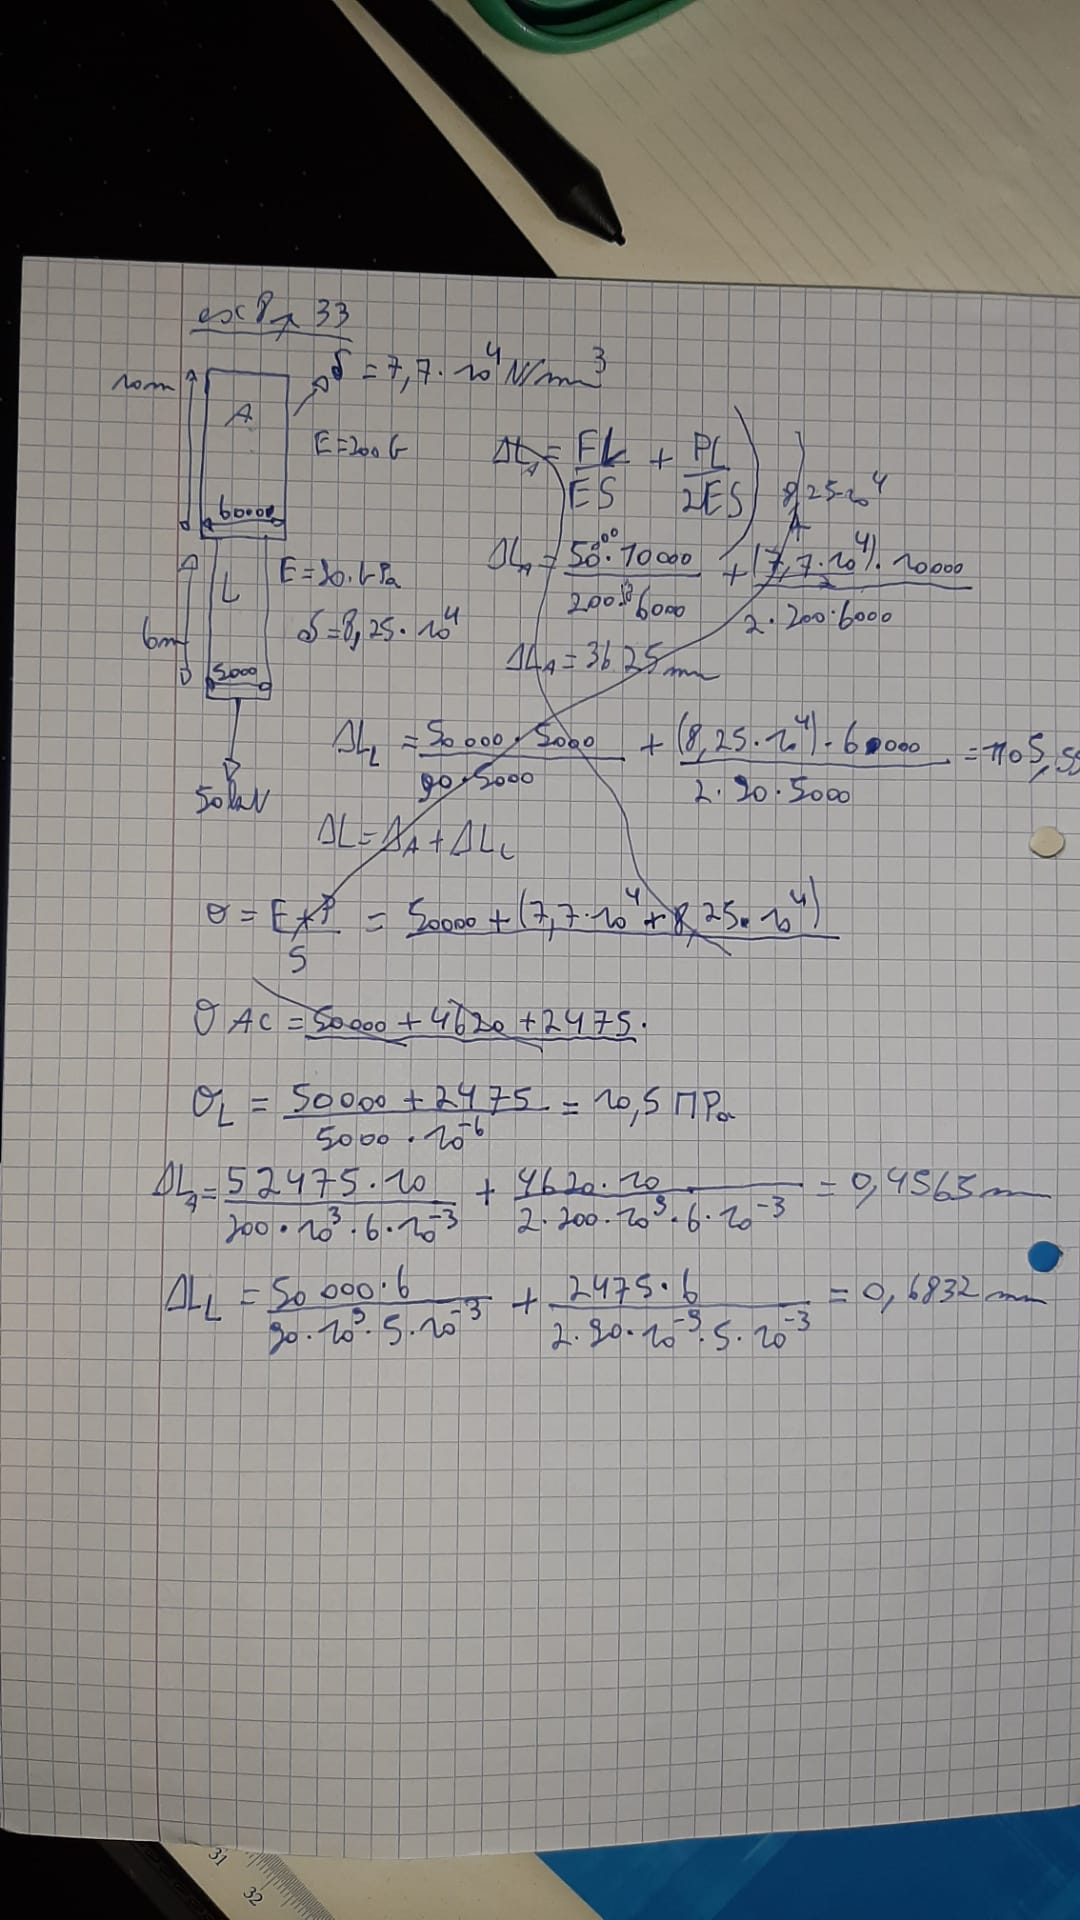 es 8 pg 33
10m
A
δ = 7,7 · 10⁴ N/m³
E=200G
6000
ΔL_A = FL/ES + PL/2ES
8,25·10⁴
L
E=90 GPa
δ=8,25·10⁴
6m
5000
50kN
ΔL_A = 50000·10000/200·10³·6000 + (7,7·10⁴)·10000/2·200·6000
ΔL_A = 3625mm
ΔL_L = 50000·5000/90·5000 + (8,25·10⁴)·60000/2·90·5000 = 1105,55
ΔL=Δ_A+ΔL_L
σ = F+P/S = 50000+(7,7·10⁴+8,25·10⁴)
σ AC = 50000+4620+2475.
σ_L = 50000+2475/5000·10⁻⁶ = 10,5 MPa
ΔL_A = 52475·10/200·10³·6·10⁻³ + 4620·10/2·200·10⁹·6·10⁻³ = 0,4565mm
ΔL_L = 50000·6/90·10⁹·5·10⁻³ + 2475·6/2·90·10⁻⁹·5·10⁻³ = 0,6832mm
31
32